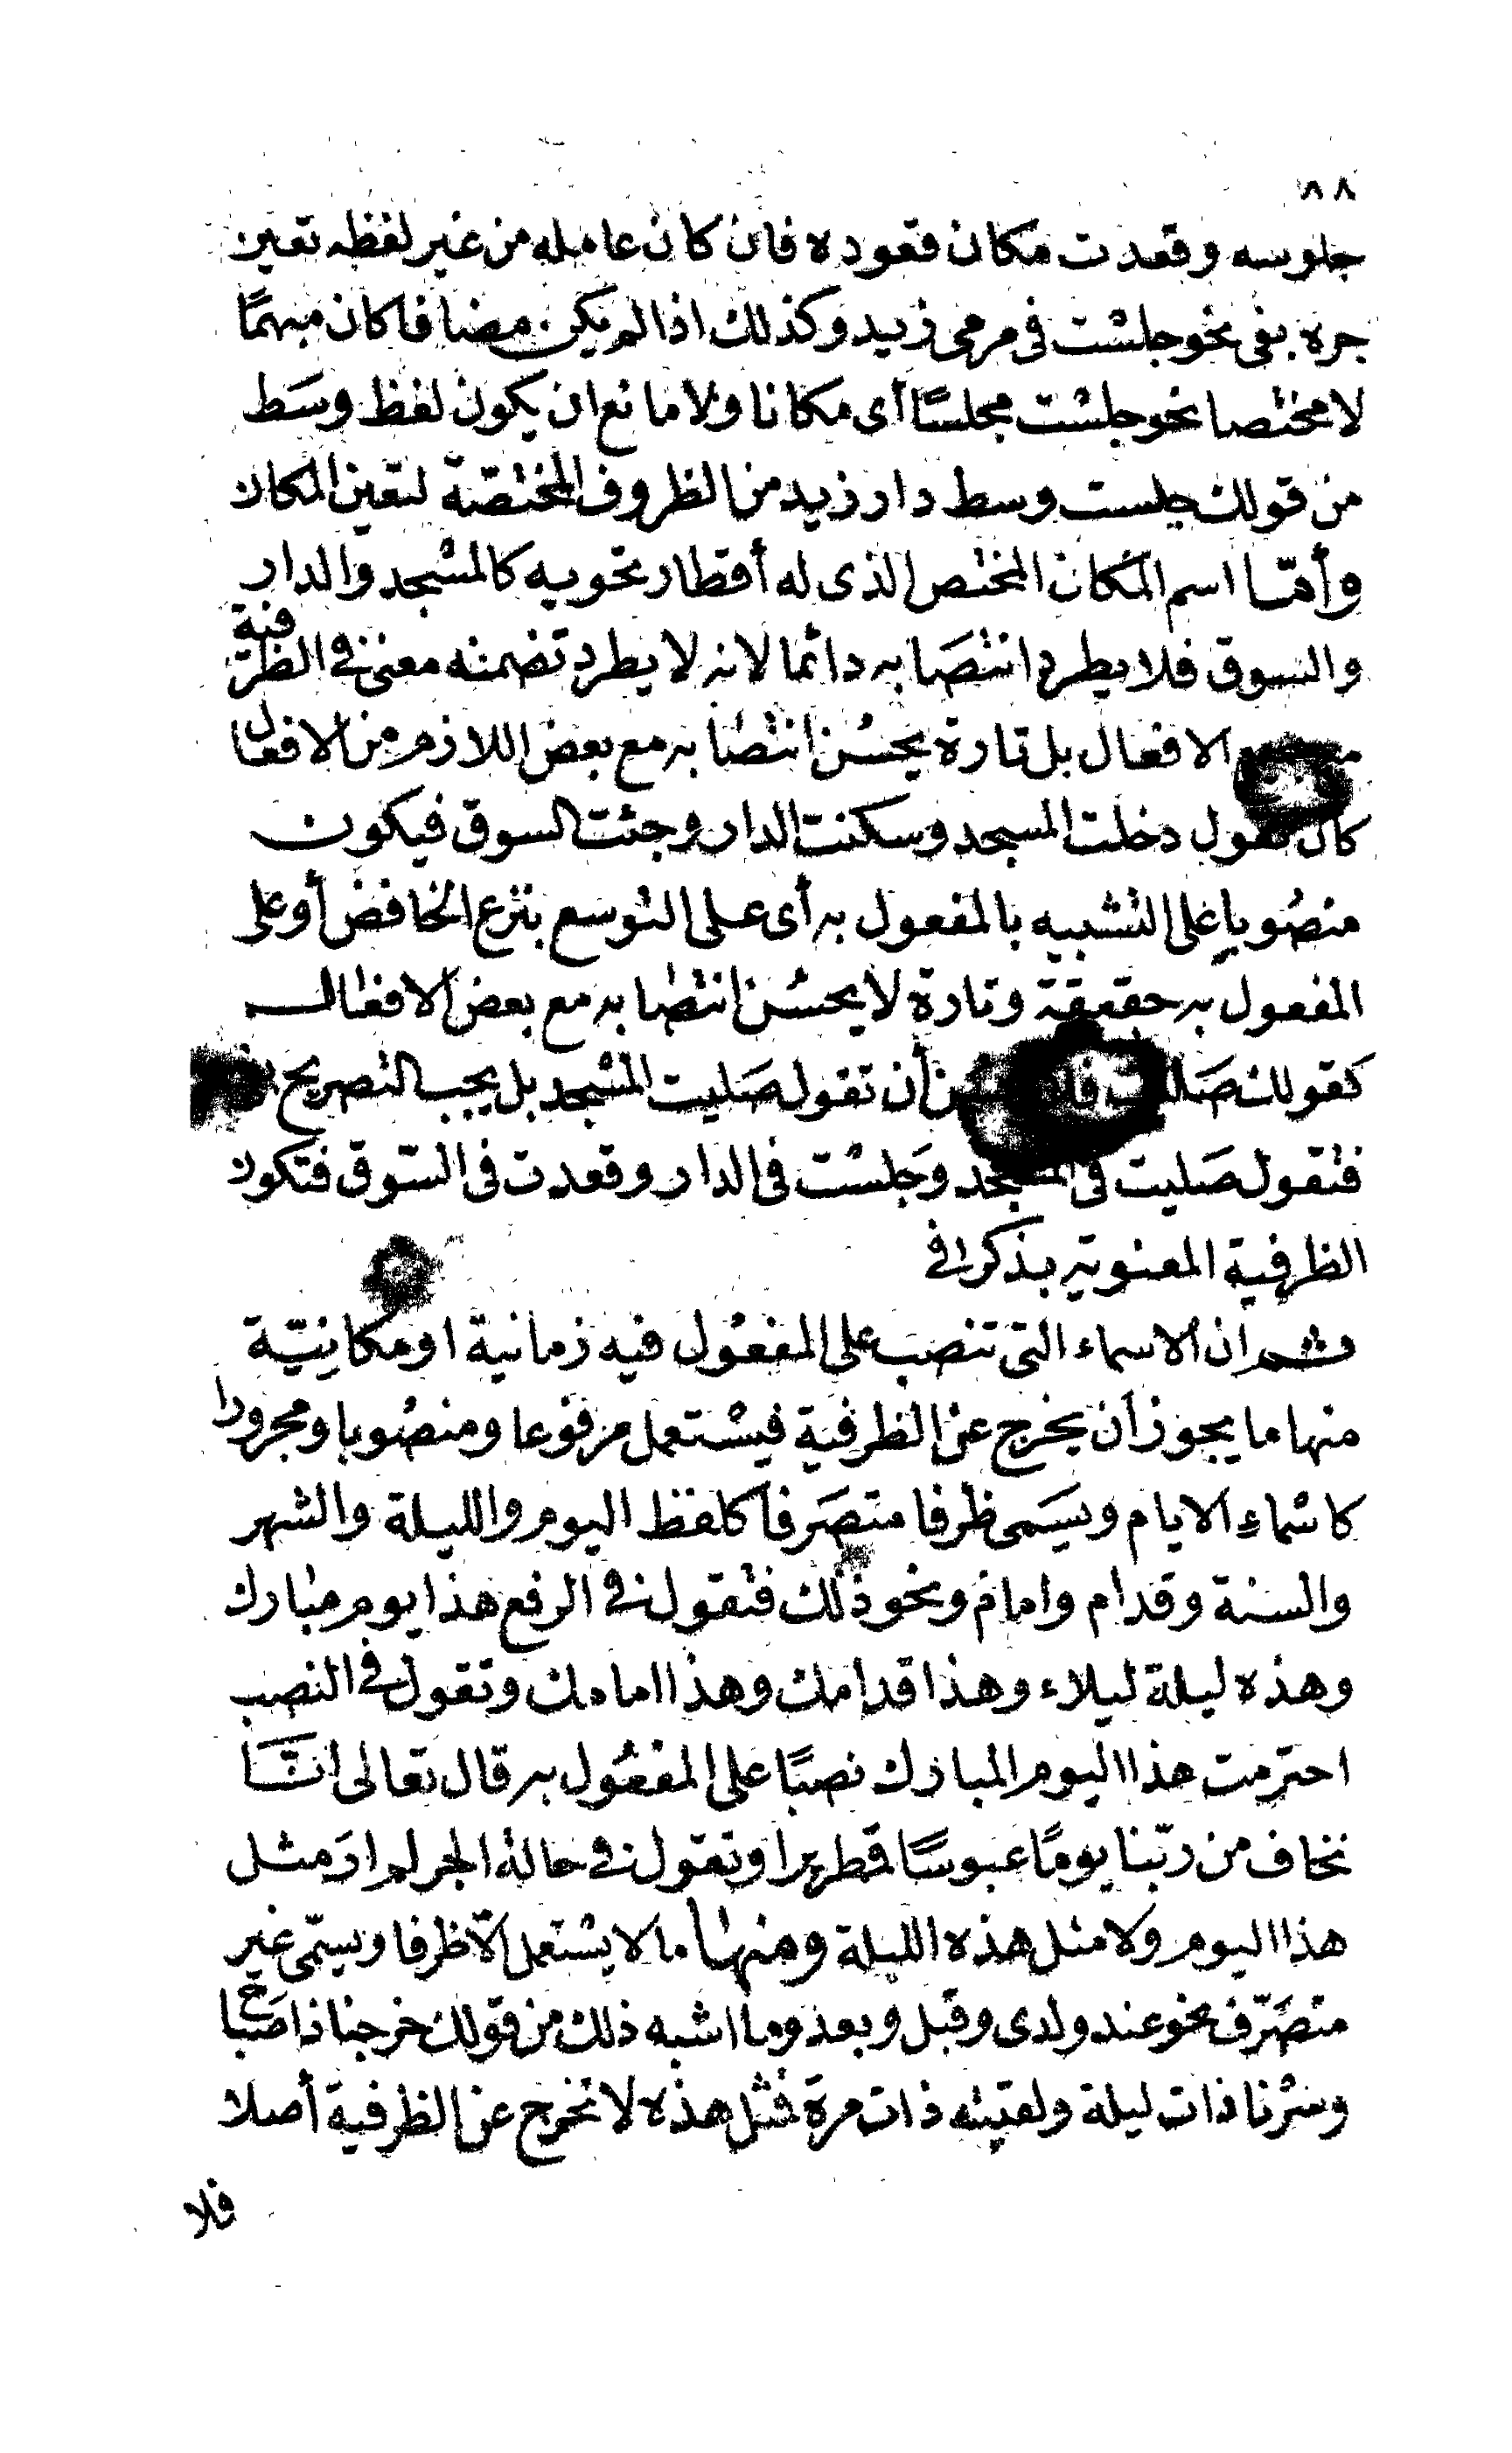 ٨٨
جلوسه وقعدت مكان قعوده فان كان عامله من غير لفظه تعين
جره بفى نحو جلست فى مرمى زيد وكذلك اذا لم يكن مضافا كان مبهمًا
لا مختصا نحو جلست مجلسًا أى مكانا ولا مانع ان يكون لفظ وسَط
من قولك جلست وسط دار زيد من الظروف المختصّة لتعين المكان
وأمّا اسم المكان المختص الذى له أقطار تحويه كالمسجد والدار
والسوق فلا يطرد انتصَابه دائما لانه لا يطرد تضمنه معنى فى الظرفية
الافعال بل تارة يحسُن انتصابه مع بعض اللازم من الافعال
كأن تقول دخلت المسجد وسكنت الدار وجئت السوق فيكون
منصُوبا على التشبيه بالمفعول به أى على التوسع بنزع الخافض أو على
المفعول به حقيقة وتارة لا يحسُن انتصابه مع بعض الافعال
كقولك صَليت أن تقول صَليت المسجد بل يجب التصريح
فتقول صَليت فى المسجد وجَلسْت فى الدار وقعدت فى السّوق فتكون
الظرفية المعنوية بذكر فى
ثم ان الاسماء التى تنصب على المفعُول فيه زمانية او مكانيّة
منها ما يجوز أن يخرج عن الظرفية فيسْتعمل مرفوعا ومنصُوبا ومجرورا
كاسْماء الايام ويسَمى ظرفا متصَرفا كلفظ اليوم والليلة والشهر
والسنة وقدام وامام ونحو ذلك فتقول فى الرفع هذا يوم مبارك
وهذه ليلة ليلاء وهذا قدامك وهذا امامك وتقول فى النصب
احترمت هذا اليوم المبارك نصبًا على المفعُول به قال تعالى انّا
نخاف من ربّنا يومًا عبوسًا قمطريرا وتقول فى حالة الجر لم ارَ مثل
هذا اليوم ولا مثل هذه الليلة ومنها ما لا يسْتعمل الّا ظرفا ويسمّى غير
متصَرّف نحو عند ولدى وقبل وبعد وما اشبه ذلك من قولك خرجنا ذا صَباح
وسْرنا ذات ليلة ولقيته ذات مرة فمثل هذه لا تخرج عن الظرفية أصلا
فلا